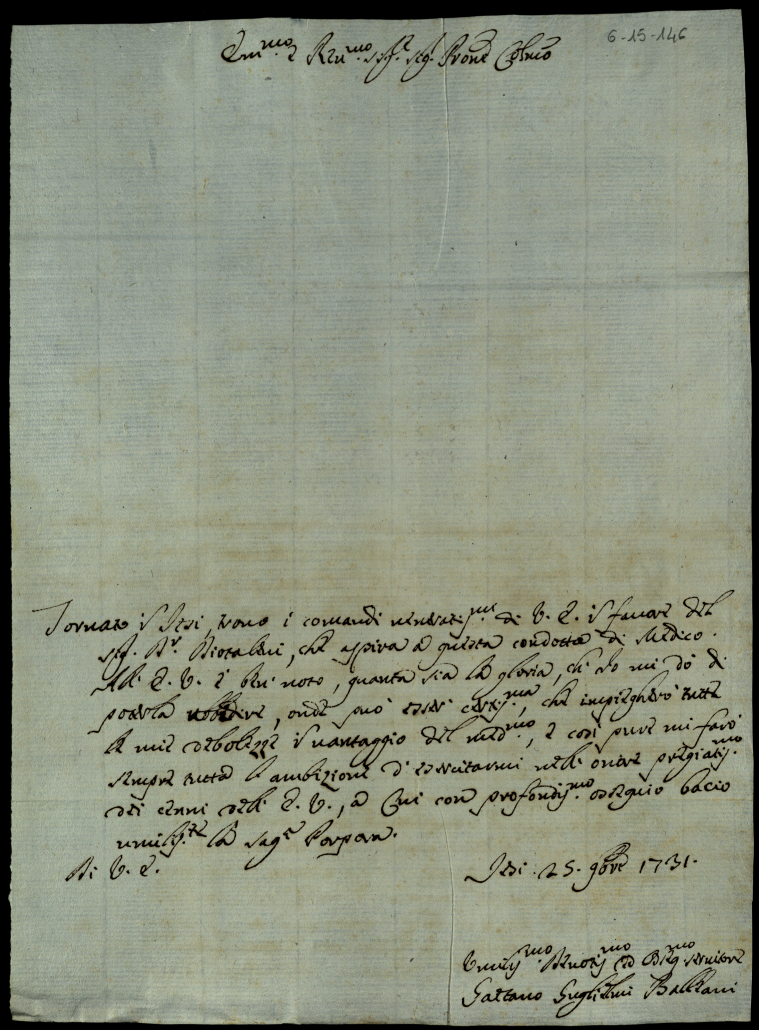 6-15-146
Em.mo e Rev.mo Sig.r Sig. Prone Colmo
Tornato in Jesi, trovo i comandi veneratis.mi di V. E. in favore del
Sig. D.r, che aspira a questa condotta di Medico.
All' E. V. è ben noto, quanta sia la gloria, ch' Io mi dò di
poterla ubbidire, onde può esser certis.ma, che impiegherò tutte
le mie debolezze in vantaggio del med.mo, e così pure mi farò
sempre tutta l'ambizione d'esercitarmi nell' onore pregiatis.mo
dei cenni dell' E. V., a Cui con profondis.mo ossequio bacio
umilis.te la Sag.a Porpora.
Di V. E. Jesi. 25. 9bre 1731.
Umilis.mo Devotis.mo ed Obblig.mo servitore
Gaetano Guglielmi Balleani